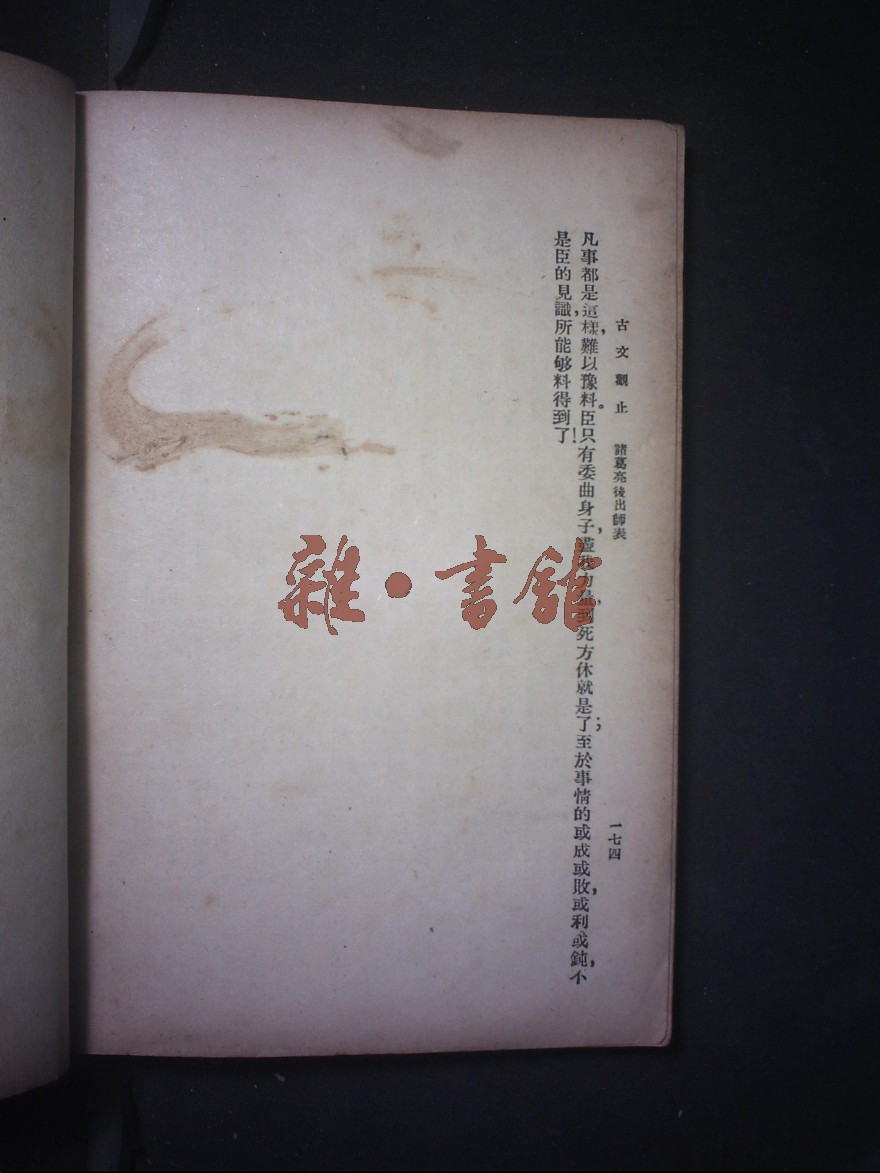 古文觀止 諸葛亮後出師表 一七四
凡事都是這樣，難以豫料。臣只有委曲身子，盡死方休就是了；至於事情的或成或敗，或利或鈍，不
是臣的見識，所能够料得到了！
雜·書館